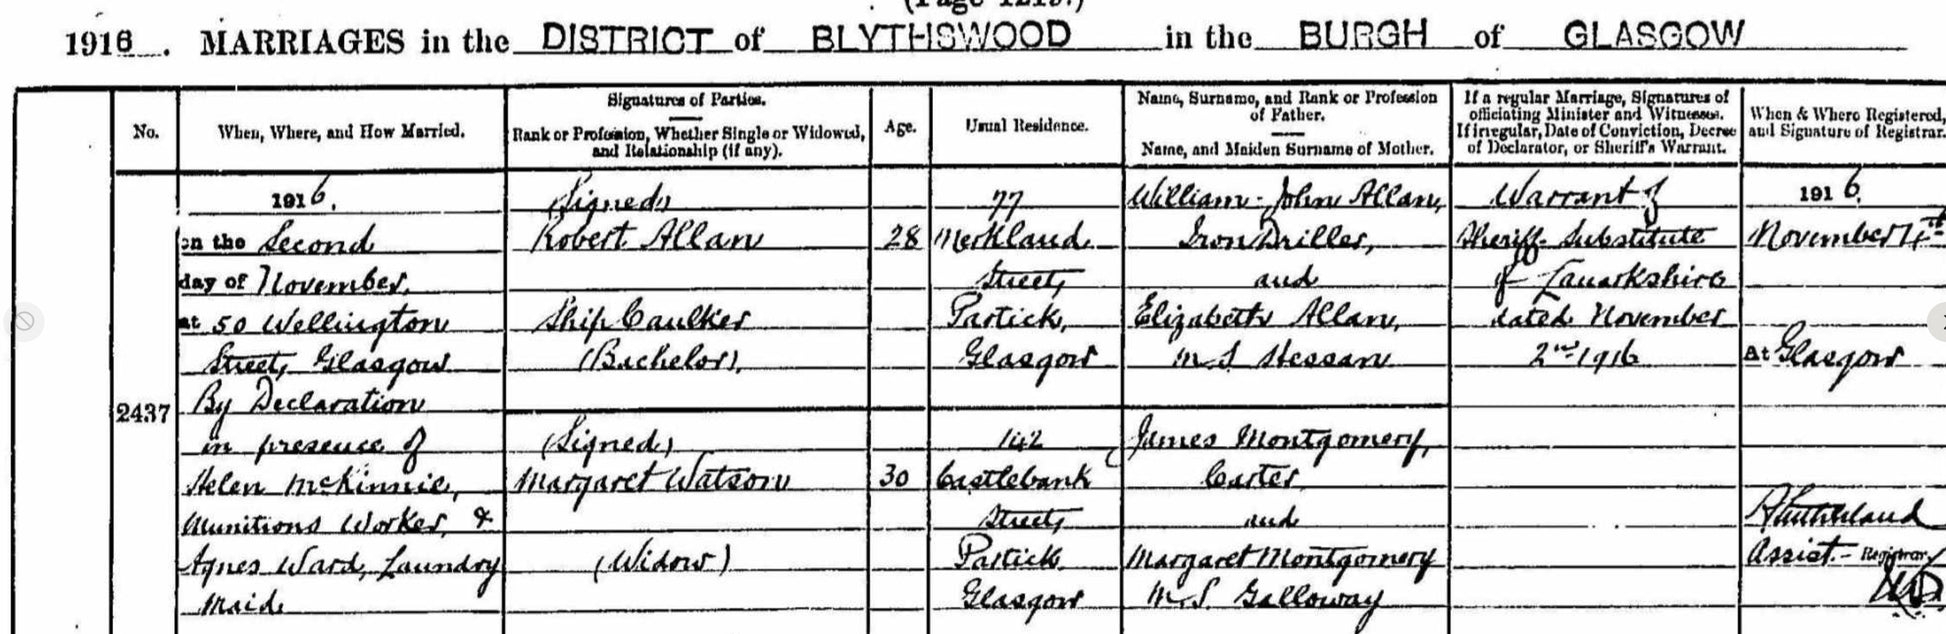 1916. MARRIAGES in the DISTRICT of BLYTHSWOOD in the BURGH of GLASGOW
No.
When, Where, and How Married.
Signatures of Parties.
Rank or Profession, Whether Single or Widowed,
and Relationship (if any).
Age.
Usual Residence.
Name, Surname, and Rank or Profession
of Father.
Name, and Maiden Surname of Mother.
If a regular Marriage, Signatures of
officiating Minister and Witnesses.
If irregular, Date of Conviction, Decree
of Declarator, or Sheriff's Warrant.
When & Where Registered,
and Signature of Registrar.
2437
1916.
on the Second
day of November,
at 50 Wellington
Street, Glasgow
By Declaration
in presence of
Helen McKinnie,
Munitions Worker, &
Agnes Ward, Laundry
Maid
(Signed)
Robert Allan
Ship Caulker
(Bachelor),
(Signed)
Margaret Watson
(Widow)
28
30
77
Merkland
Street,
Partick,
Glasgow
142
Castlebank
Street,
Partick
Glasgow
William John Allan,
Iron Driller,
and
Elizabeth Allan,
M.S. Hessan
James Montgomery,
Carter
and
Margaret Montgomery
M.S. Galloway
Warrant of
Sheriff Substitute
of Lanarkshire
dated November
2nd 1916
1916.
November 4th
At Glasgow
Assist.- Registrar